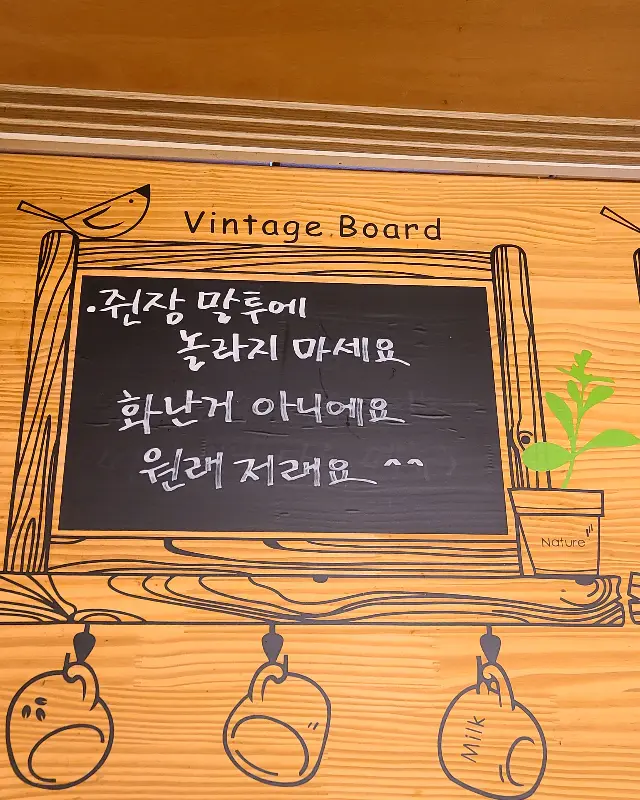 Vintage Board
·쥔장 말투에
놀라지 마세요
화난거 아니에요
원래 저래요 ^^
Nature
Milk